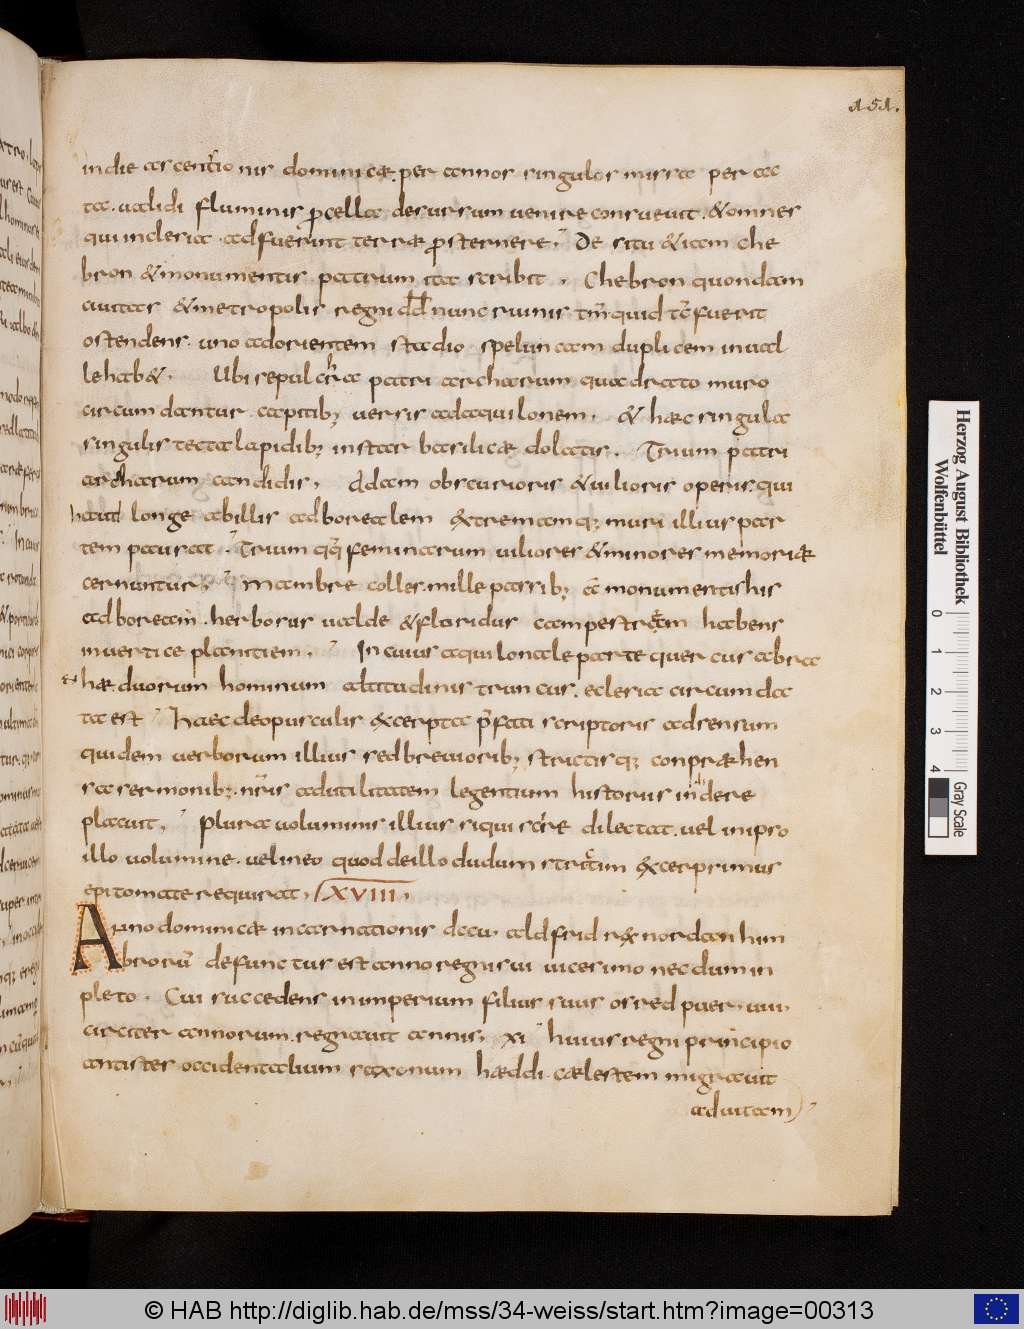 151.
in die ascentionis dominicæ. per annos singulos missa per ac
ta. ualidi fluminis pcella desursum uenire consueuit. &omnes
qui in clesia adfuerint terræ psternere; De situ &iam che
bron &monumentis patrum ita scribit. Chebron quondam
ciuitas &metropolis regni dd nunc ruinis tm quid tc fuerit
ostendens. uno adorientem stadio speluncam duplicem inual
le hab&. Ubi sepulcra patriarcharum quadrato muro
circumdantur. capitib; uersis adaquilonem. & hæc singula
singulis tecta lapidib; instar basilicæ dolatis. Trium patri
archarum candidis, Adam obscurioris &uilioris operis. qui
haud longe abillis adborealem extremamq; muri illius par
tem pausat. Trium qq feminarum uiliores &minores memoriæ
cernuntur; Mambre collis. mille passib; a monumentis his
adboream. herbosus ualde &floridus campestrem habens
inuertice planitiem; In cuius aquilonale parte quercus abra
hæ duorum hominum altitudinis truncus. eclesia circumda
ta est; Haec deopusculis excerpta pfati scriptoris adsensum
quidem uerborum illius sedbreuiorib; strictisq; conpræhen
sa sermonib; nris adutilitatem legentium historiis indere
placuit; Plura uoluminis illius siquis scire dilectat. uel inipso
illo uolumine. uel ineo quod deillo dudum strictim excerpsimus
epitomate requirat. XVIII.
Anno dominicæ incarnationis dccu. aldfrid rex nordanhim
brorum defunctus est anno regni sui uicesimo necdum in
pleto. Cui succedens inimperium filius suus osred puer. uiii.
circiter annorum. regnauit annis. xi Huius regni principio
antistes occidentalium saxonum hæddi cælestem migrauit
aduitam
Herzog August Bibliothek
Wolfenbüttel
0 1 2 3 4
Gray Scale
© HAB http://diglib.hab.de/mss/34-weiss/start.htm?image=00313